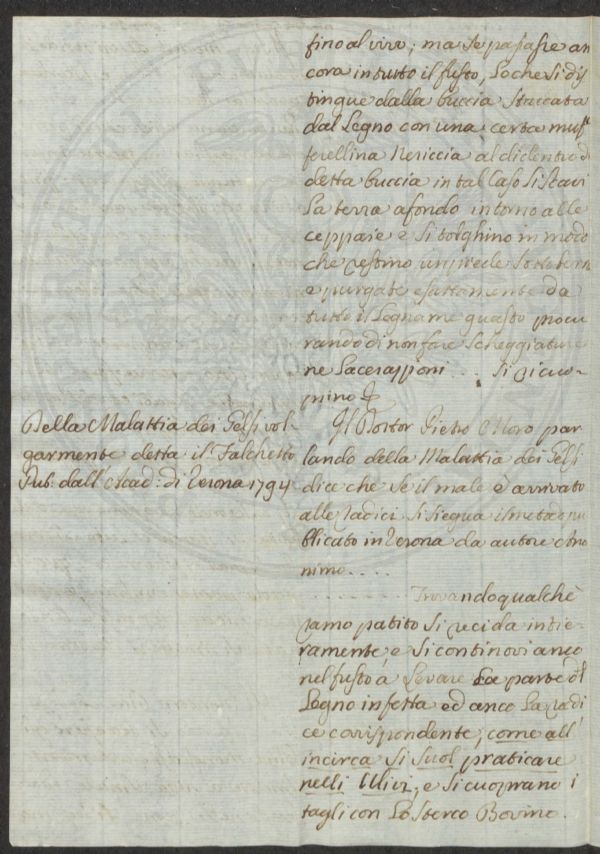 fino al vivo; ma se passasse an
cora in tutto il fusto, Loche si dis
tingue dalla buccia staccata
dal Legno con una certa muf
ferellina Nericcia al di dentro di
detta buccia in tal Caso si scavi
La terra a fondo intorno alle
ceppaie e si tolghino in modo
che restino un piede sotto terra
e purgate esattamente da
tutto il Legname guasto procu
rando di non fare scheggiature
ne Lacerazioni .... si ricuo-
prino &
Della Malattia dei Gelsi vol-
garmente detta il Falchetto
Pub: dall' Acad: di Verona 1794
Il Dottor Pietro Moro par
lando della Malattia dei Gelsi
dice che se il male è arrivato
alle radici si siegua il metodo pu
blicato in Verona da autore Ano
nimo .....
........ Trovando qualche
ramo patito si recida intie-
ramente, e si continovi anco
nel fusto à Levare La parte dl
Legno infetta ed anco La radi
ce corispondente, come all'
incirca si suol praticare
nelli Ulivi, e si cuoprano i
tagli con Lo sterco Bovino.